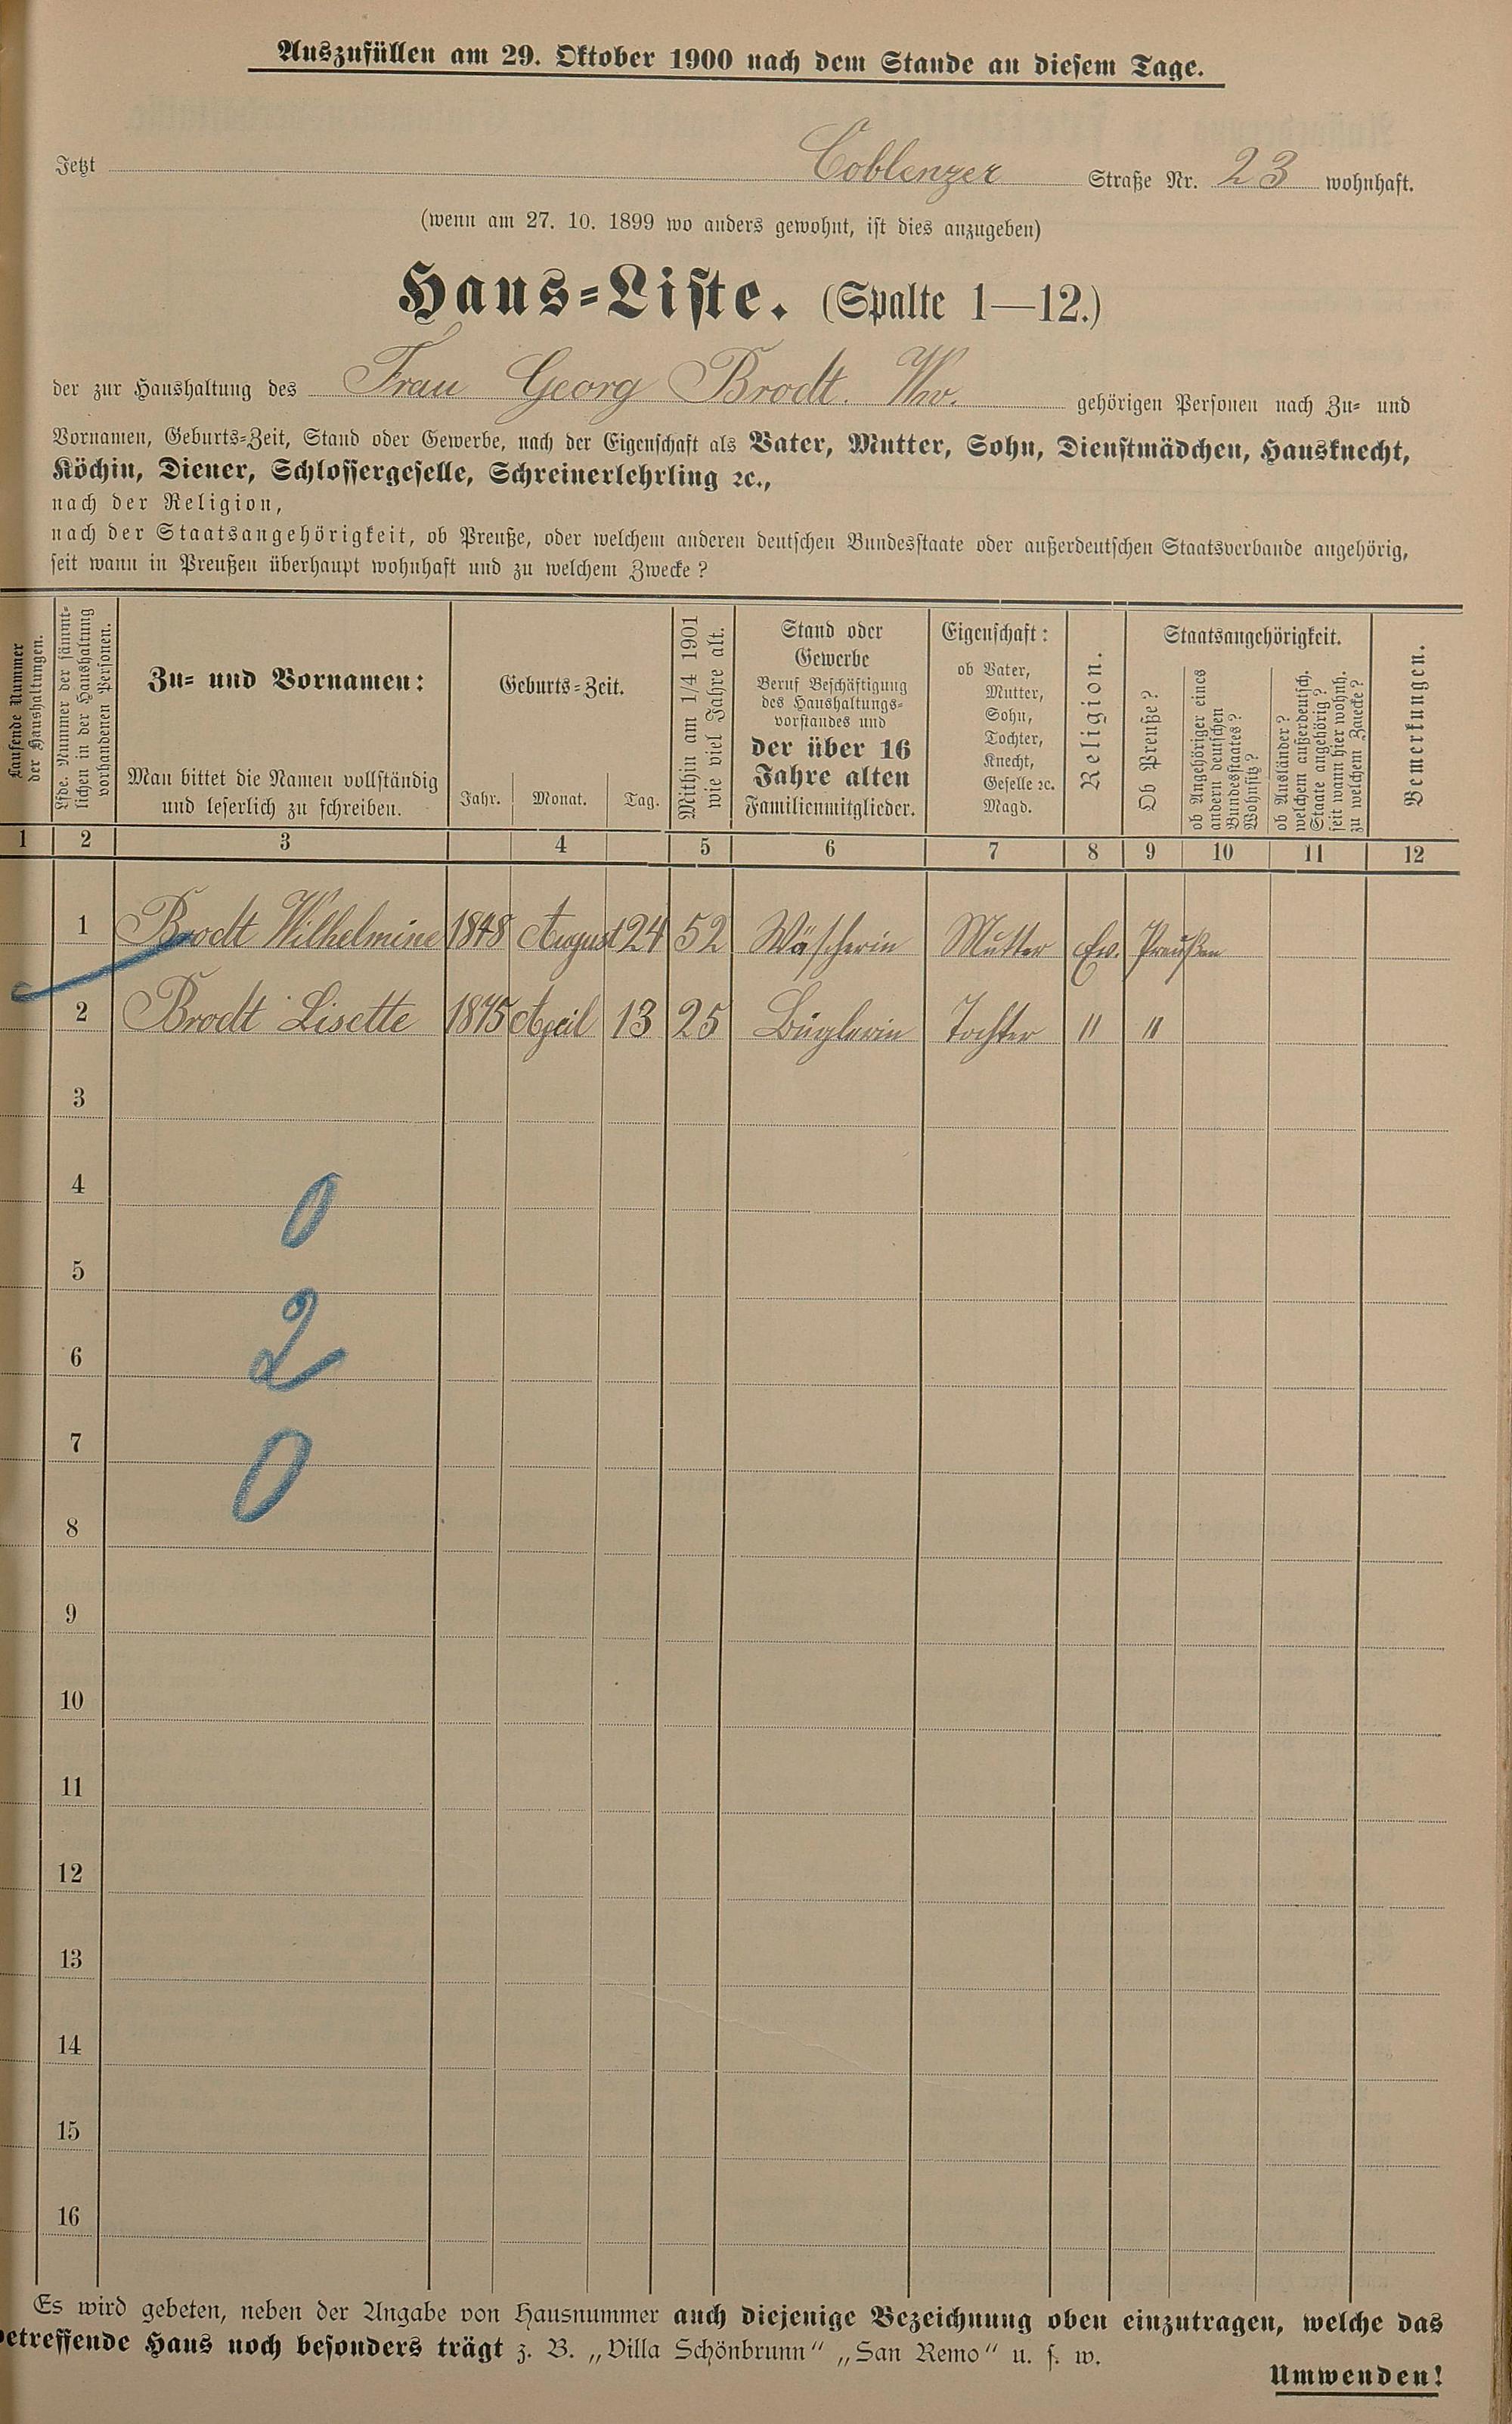 Auszufüllen am 29. Oktober 1900 nach dem Stande an diesem Tage.
Jetzt Coblenzer Straße Nr. 23 wohnhaft.
(wenn am 27. 10. 1899 wo anders gewohnt, ist dies anzugeben)
Haus-Liste. (Spalte 1—12.)
der zur Haushaltung des Frau Georg Brodt. Ww. gehörigen Personen nach Zu- und
Vornamen, Geburts-Zeit, Stand oder Gewerbe, nach der Eigenschaft als Vater, Mutter, Sohn, Dienstmädchen, Hausknecht,
Köchin, Diener, Schlossergeselle, Schreinerlehrling ꝛc.,
nach der Religion,
nach der Staatsangehörigkeit, ob Preuße, oder welchem anderen deutschen Bundesstaate oder außerdeutschen Staatsverbande angehörig,
seit wann in Preußen überhaupt wohnhaft und zu welchem Zwecke?
Laufende Nummer
der Haushaltungen.
Lfde. Nummer der sämmt-
lichen in der Haushaltung
vorhandenen Personen.
Zu- und Vornamen:
Man bittet die Namen vollständig
und leserlich zu schreiben.
Geburts-Zeit.
Jahr. Monat. Tag.
Mithin am 1/4 1901
wie viel Jahre alt.
Stand oder
Gewerbe
Beruf Beschäftigung
des Haushaltungs-
vorstandes und
der über 16
Jahre alten
Familienmitglieder.
Eigenschaft:
ob Vater,
Mutter,
Sohn,
Tochter,
Knecht,
Geselle ꝛc.
Magd.
Religion.
Staatsangehörigkeit.
Ob Preuße?
ob Angehöriger eines
andern deutschen
Bundesstaates?
Wohnsitz?
ob Ausländer?
welchem außerdeutsch.
Staate angehörig?
seit wann hier wohnh.
zu welchem Zwecke?
Bemerkungen.
1 2 3 4 5 6 7 8 9 10 11 12
1 Brodt Wilhelmine 1848 August 24 52 Wäscherin Mutter Ev. Preußen
2 Brodt Lisette 1875 April 13 25 Büglerin Tochter " "
3
4
0
5
2
6
7
0
8
9
10
11
12
13
14
15
16
Es wird gebeten, neben der Angabe von Hausnummer auch diejenige Bezeichnung oben einzutragen, welche das
betreffende Haus noch besonders trägt z. B. „Villa Schönbrunn“ „San Remo“ u. s. w.
Umwenden!